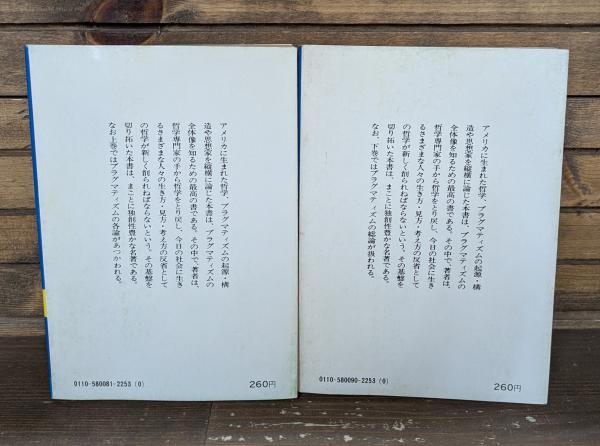 アメリカに生まれた哲学、プラグマティズムの起源・構
造や思想家を縦横に論じた本書は、プラグマティズムの
全体像を知るための最高の書である。その中で、著者は、
哲学専門家の手から哲学をとり戻し、今日の社会に生き
るさまざまな人々の生き方・見方・考え方の反省として
の哲学が新しく創られねばならないという。その基盤を
切り拓いた本書は、まことに独創性豊かな名著である。
なお上巻ではプラグマティズムの各論があつかわれる。
0110-580081-2253 (0)
260円
アメリカに生まれた哲学、プラグマティズムの起源・構
造や思想家を縦横に論じた本書は、プラグマティズムの
全体像を知るための最高の書である。その中で、著者は、
哲学専門家の手から哲学をとり戻し、今日の社会に生き
るさまざまな人々の生き方・見方・考え方の反省として
の哲学が新しく創られねばならないという。その基盤を
切り拓いた本書は、まことに独創性豊かな名著である。
なお、下巻ではプラグマティズムの総論が扱われる。
0110-580090-2253 (0)
260円